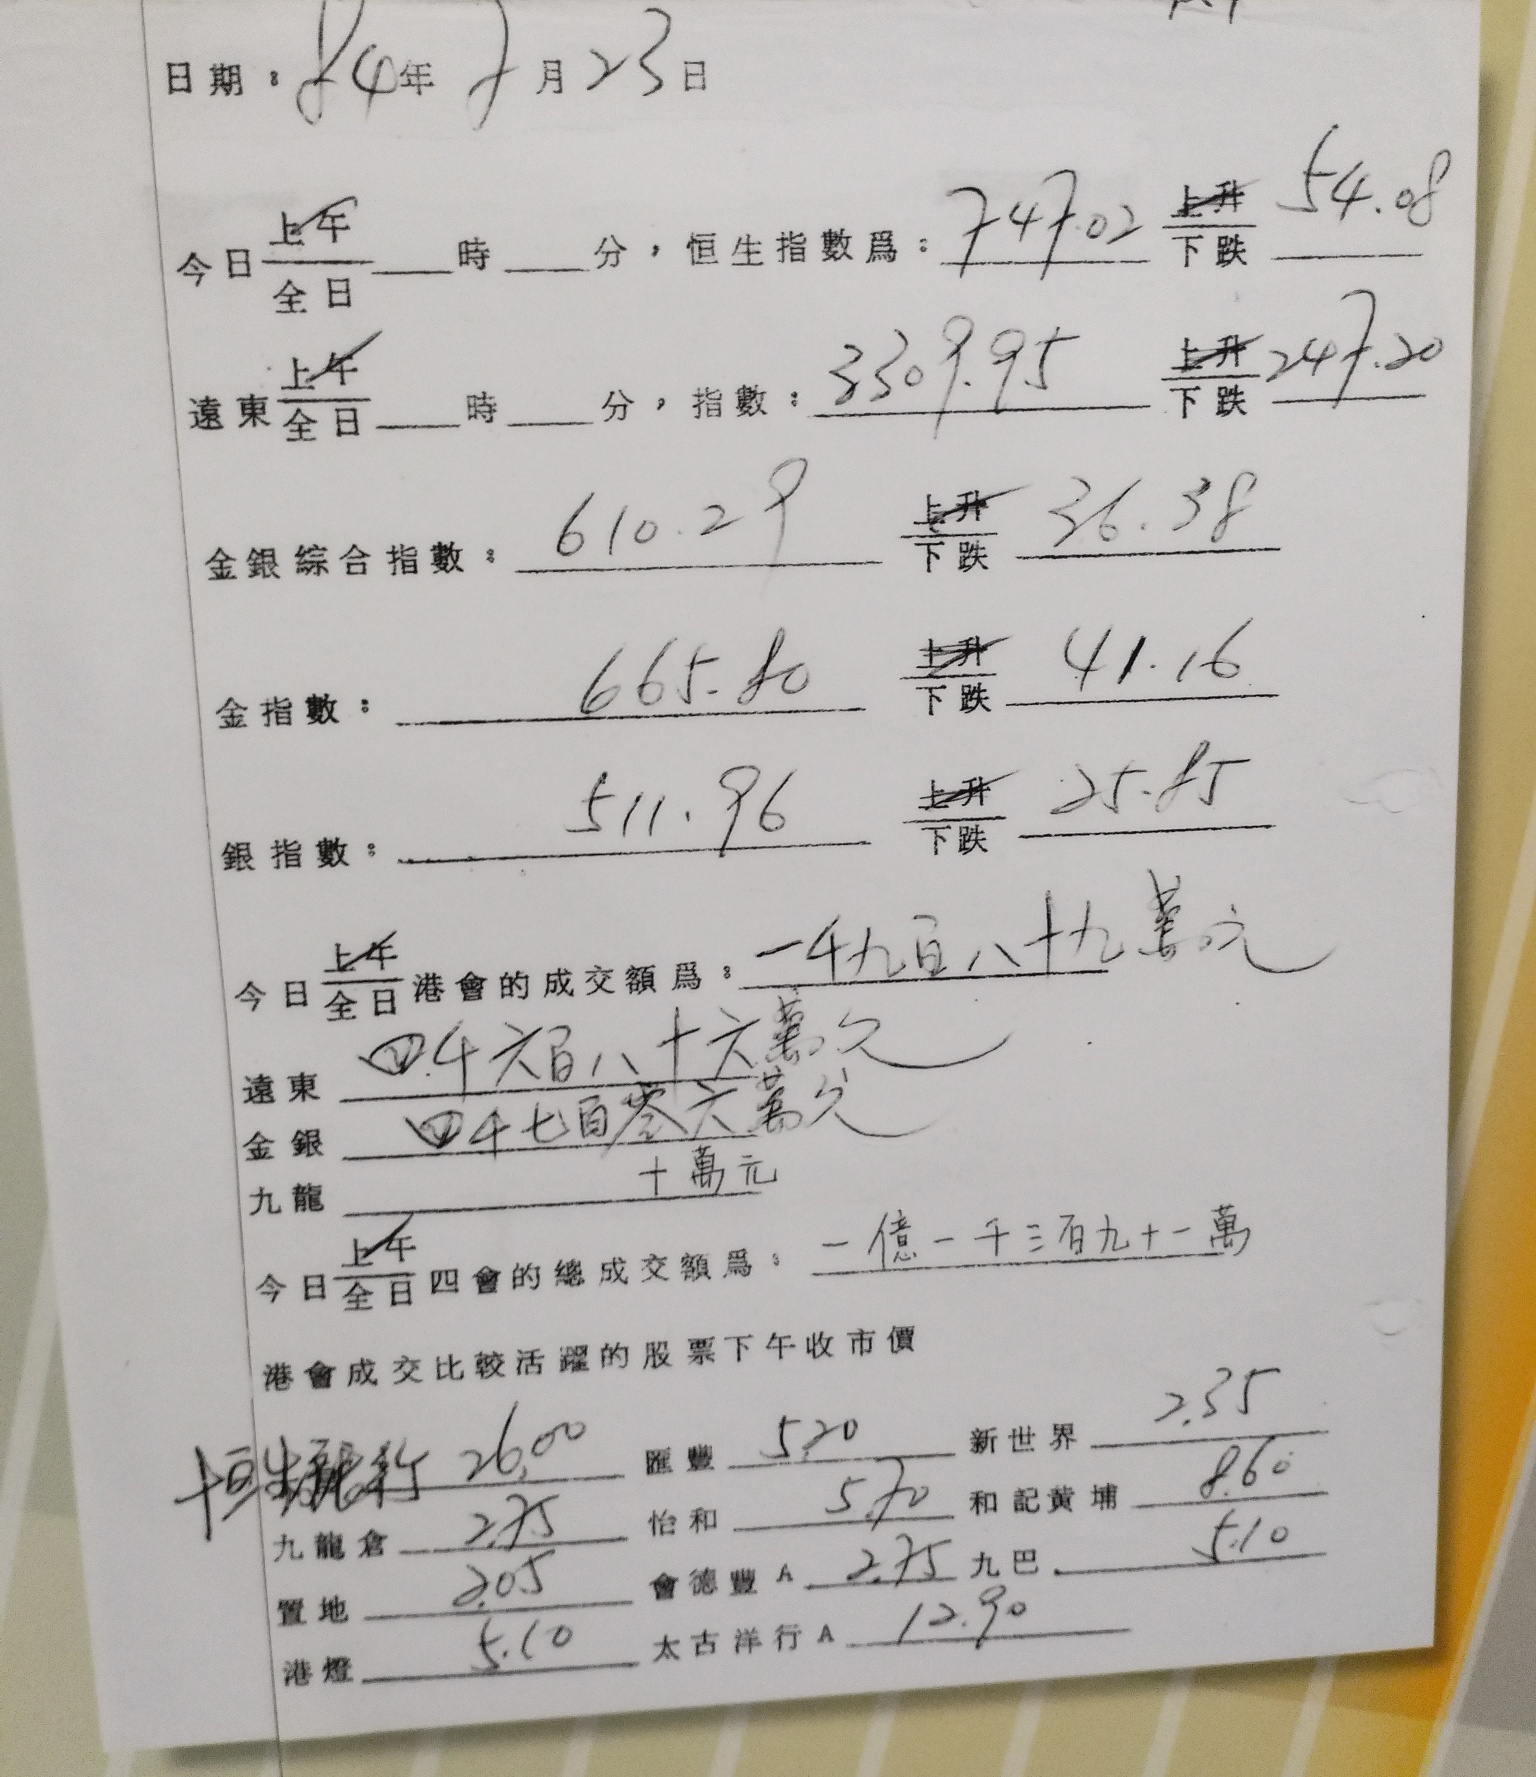 日期：84年7月23日
今日上午/全日＿＿時＿＿分，恒生指數爲：747.02 上升/下跌 54.08
遠東上午/全日＿＿時＿＿分，指數：3309.95 上升/下跌 247.20
金銀綜合指數：610.29 上升/下跌 36.38
金指數：665.80 上升/下跌 41.16
銀指數：511.96 上升/下跌 25.85
今日上午/全日港會的成交額爲：一千九百八十九萬元
遠東 四千六百八十六萬元
金銀 四千七百零六萬元
九龍 十萬元
今日上午/全日四會的總成交額爲：一億一千三百九十一萬
港會成交比較活躍的股票下午收市價
恒生銀行 26.00 匯豐 5.20 新世界 2.35
九龍倉 2.75 怡和 5.70 和記黃埔 8.60
置地 2.05 會德豐A 2.75 九巴 5.10
港燈 5.10 太古洋行A 12.90